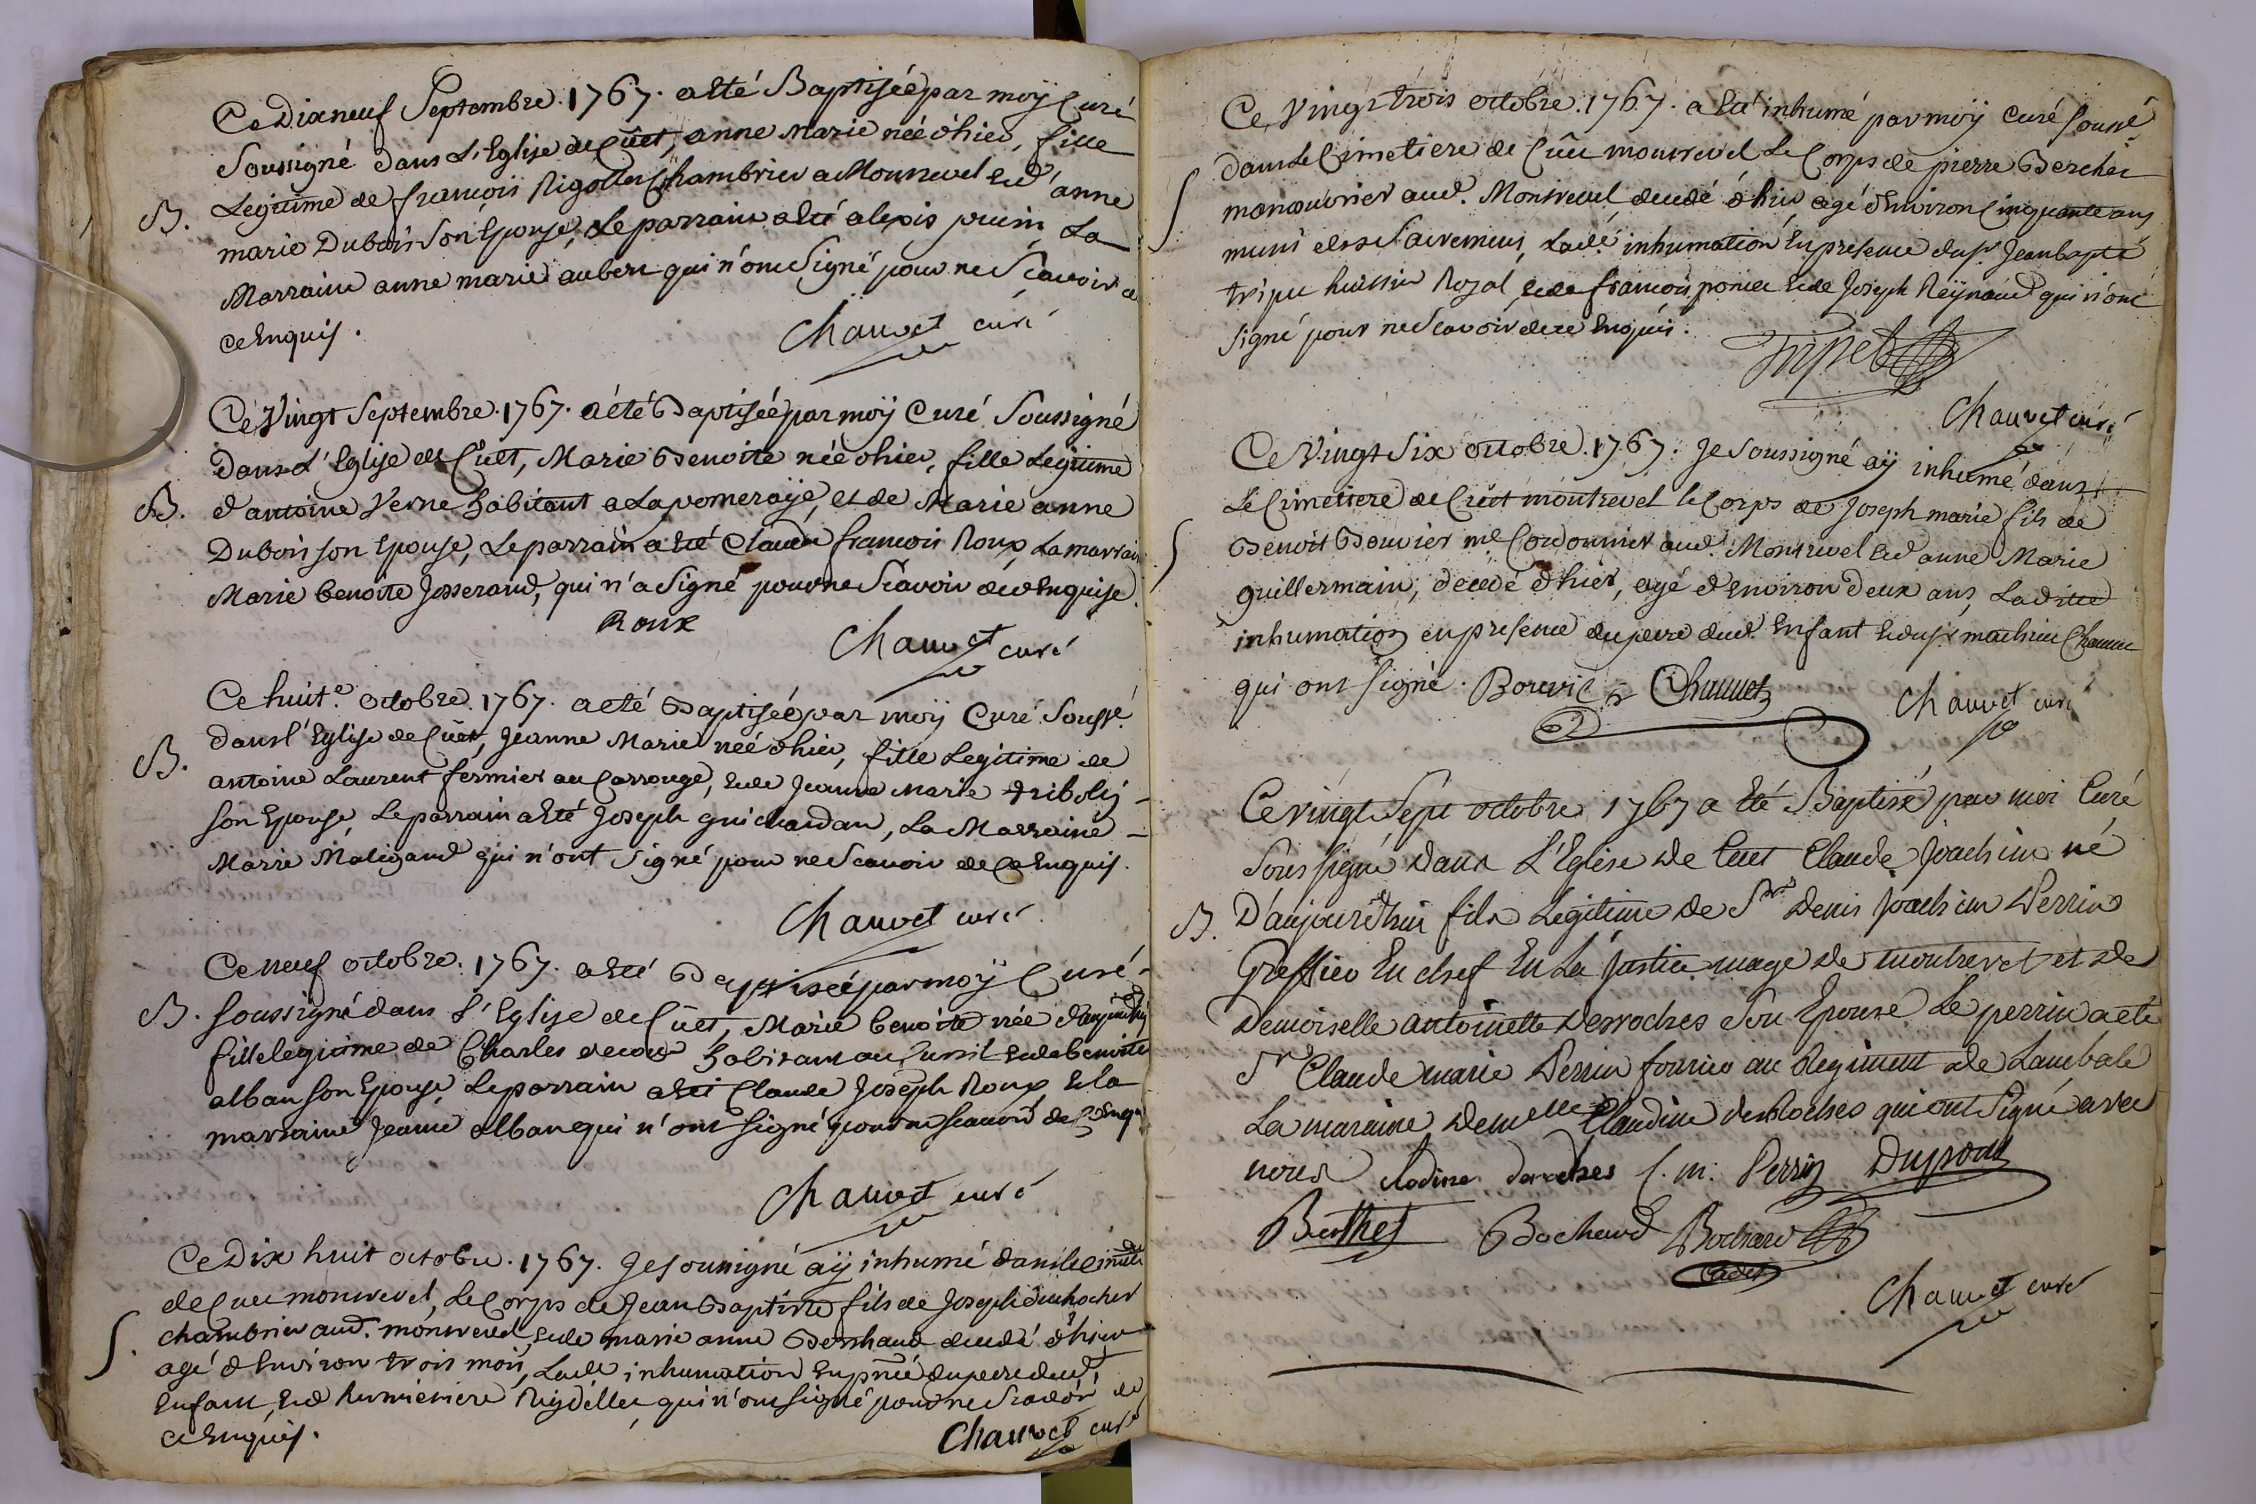 Ce Dixneuf Septembre. 1767. a été Baptisée par moÿ Curé
Soussigné dans L'Eglise de Cüet, anne Marie née d'hier, fille
B. Legitime de françois Rigollet Chambrier a Montrevel et d'anne
marie Dubois Son Epouse, Le parrain a été alexis La
Marraine anne marie aubert qui n'ont Signé pour ne Scavoir de
ce Enquis.
Chauvet curé
Ce Vingt Septembre. 1767. a été Baptisée par moÿ Curé Soussigné
dans L'Eglise de Cüet, Marie Benoite née d'hier, fille Legitime
B. d'antoine Verne habitant a Lapomeraÿe, et de Marie anne
Dubois son Epouse, Le parrain a été Claude françois Roux, La marraine
Marie benoite Josserand, qui n'a Signé pour ne Scavoir de ce Enquise.
Roux
Chauvet curé
Ce huit.e octobre. 1767. a été Baptisée par moÿ Curé Soussé.
dans l'Eglise de Cüet, Jeanne Marie née d'hier, fille Legitime de
B.
antoine Laurent fermier au Carrouge, et de Jeanne Marie triboly
Son Epouse, Le parrain a été Joseph guichardan, La Marraine
Marie Maligand qui n'ont Signé pour ne Scavoir de ce Enquis.
Chauvet curé
Ce neuf octobre. 1767. a été Baptisée par moÿ Curé
B. Soussigné dans L'Eglise de Cüet, Marie benoite née d'aujourdhuy
fille legitime de Charles decour habitant au et de benoite
alban son Epouse, Le parrain a été Claude Joseph Roux et la
marraine Jeanne alban qui n'ont Signé pour ne scavoir de ce Enquis
Chauvet curé
Ce Dix huit octobre. 1767. Je soussigné aÿ inhumé dans le cimet.
de Cuet montrevel, Le Corps de Jean Baptiste fils de Joseph
S. chambrier aud. montrevel, et de marie anne decedé d'hier
agé d'Environ trois mois, Lade inhumation En pnce du pere dud.
Enfant, et d' qui n'ont Signé pour ne Scavoir de
ce Enquis.
Chauvet curé
Ce Vingt trois octobre. 1767. a été inhumé par moÿ curé Soussé
dans Le Cimetiere de Cüet montrevel Le Corps de pierre Berchet
S manouvrier aud. Montrevel decedé d'hier agé d'Environ Cinquante ans
muni des Sacremens, Lade. inhumation En presence du Sr Jean bapte
tripet huissier Royal, et de françois et de Joseph Reÿnaud qui n'ont
Signé pour ne Scavoir de ce Enquis.
Tripet
Chauvet curé
Ce Vingt Six octobre. 1767. Je Soussigné aÿ inhumé dans
Le Cimetiere de Cüet montrevel le Corps de Joseph marie fils de
S Benoit Bouvier me Cordonnier aud. Montrevel et d'anne Marie
guillermain, decedé d'hier, agé d'Environ deux ans, Laditte
inhumation en presence du pere dud. Enfant et du Sr mathieu Chauvet
qui ont Signé. Bouvier Chauvet
Chauvet curé
Ce vingt Sept octobre 1767 a Eté Baptisé par moi Curé
Soussigné dans L'Eglise de Cuet Claude Joachim né
B. D'aujourdhui fils Legitime de Sr Denis Joachim Perrin
Greffier En chef En La Justice mage de montrevel et de
Demoiselle antoinette Desroches Son Epouse Le perrin a eté
Sr Claude marie Perrin fourier au Regiment de Lambale
La maraine Demelle Claudine desRoches qui ont Signé avec
nous clodine deroches C. m. Perrin Dupont
Berthet Bochard Bochard
cadet
Chauvet curé